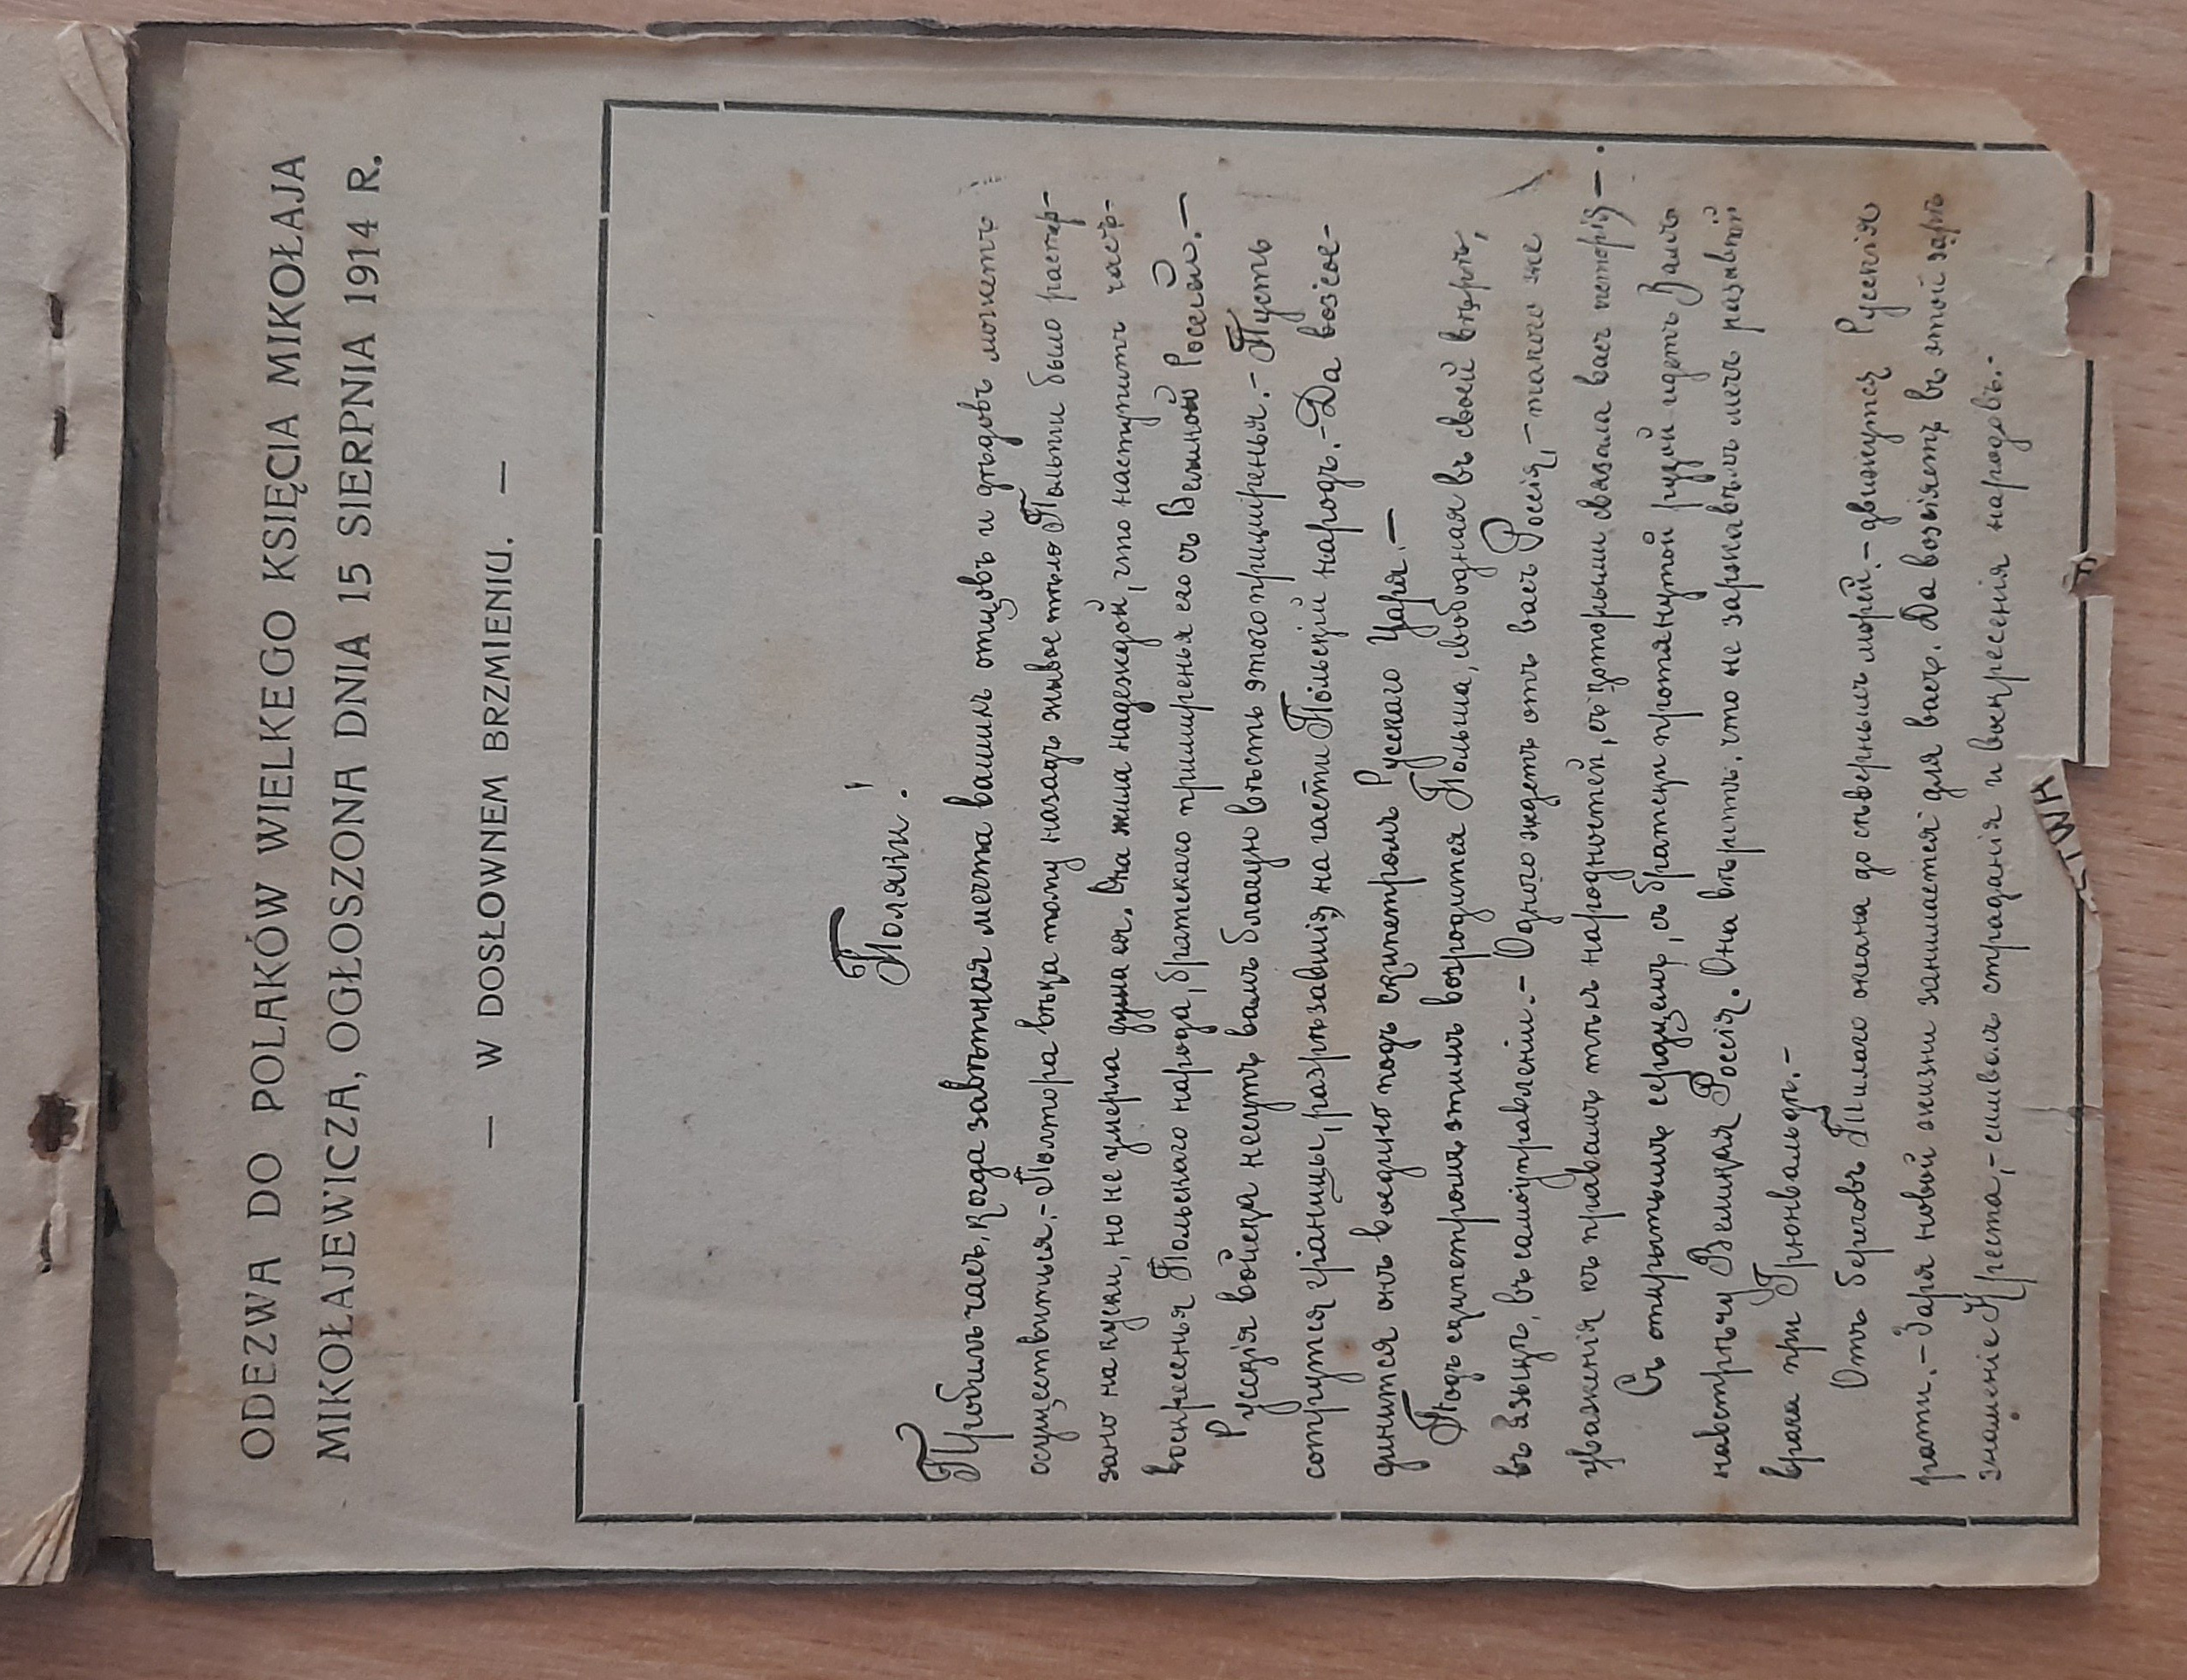 ODEZWA DO POLAKÓW WIELKEGO KSIĘCIA MIKOŁAJA
MIKOŁAJEWICZA, OGŁOSZONA DNIA 15 SIERPNIA 1914 R.
— W DOSŁOWNEM BRZMIENIU. —
Поляки!
Пробилъ часъ, когда завѣтная мечта вашихъ отцовъ и дѣдовъ можетъ
осуществиться.- Полтора вѣка тому назадъ живое тѣло Польши было растер-
зано на куски, но не умерла душа ея. Она жила надеждой, что наступитъ часъ-
воскресенья Польскаго народа, братскаго примиренья его съ Великой Россией.—
Русскія войска несутъ вамъ благую вѣсть этого примиренья.- Пусть
сотрутся границы, разрѣзавшія на части Польскій народъ.- Да возсое-
динится онъ воедино подъ скипетромъ Русскаго Царя.—
Подъ скипетромъ этимъ возродится Польша, свободная въ своей вѣрѣ,
въ языкѣ, въ самоуправленіи.- Одного ждетъ отъ васъ Россія,- такого же
уваженія къ правамъ тѣхъ народностей, съ которыми связала васъ исторія—.
Съ открытымъ сердцемъ, съ братски протянутой рукой идетъ Вамъ
навстрѣчу Великая Россія. Она вѣритъ, что не заржавѣлъ мечъ разившій
врага при Грюнвальдѣ.-
Отъ береговъ Тихаго океана до сѣверныхъ морей.- движутся Русскія
рати.- Заря новой жизни занимается для васъ. Да возсіяетъ въ этой зарѣ
знаменіе Креста,- символъ страданія и воскресенія народовъ.-
TWH